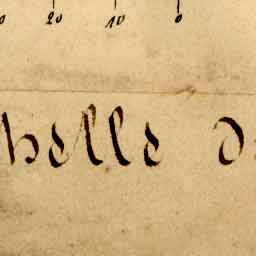 20 10 0
helle d